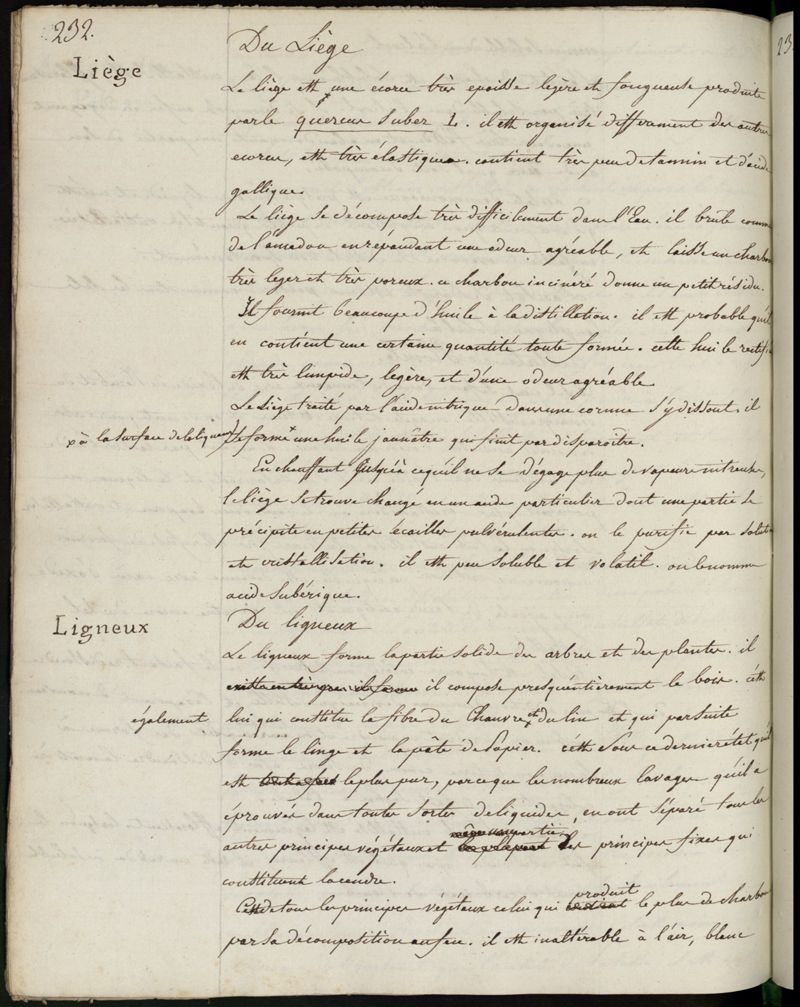 232.
Du Liège
Liège
Le liège est une écorce très epaisse legère et fongueuse produite
par le quercus suber L. il est organisé differement des autres
ecorces, est très élastique. contient très peu de tannin et d'acide
gallique.
Le liège se décompose très difficilement dans l'Eau. il brule comme
de l'amadou en répandant une odeur agréable, et laisse un charbon
très leger et très poreux. ce charbon incinéré donne un petit résidu.
Il fournit beaucoup d'huile à la distillation. il est probable qu'il
en contient une certaine quantité toute formée. cette huile rectifiée
est très limpide, legère, et d'une odeur agréable
Le Liège traité par l'acide nitrique dans une cornue s'y dissout. il
x à la surface de la liqueur
se forme x une huile jaunâtre qui finit par disparoitre.
En chauffant jusqu'à ce qu'il ne se dégage plus de vapeurs nitreuses,
le liège se trouve changé en un acide particulier dont une partie se
précipite en petites écailles pulvérulentes. on le purifie par solution
et cristallisation. il est peu soluble et volatil. on le nomme
acide subérique.
Ligneux
Du ligneux
Le ligneux forme la partie solide des arbres et des plantes. il
il compose presqu'entièrement le bois. c'est
également
lui qui constitue la fibre du Chanvre et du lin et qui par suite
forme le linge et la pâte de Papier. c'est sous ce dernier état qu'il
est le plus pur, parce que les nombreux lavages qu'il a
éprouvés dans toutes sortes de liquides, en ont séparé tous les
autres principes végétaux et même une partie des principes fixes qui
constituent la cendre.
C'est de tous les principes végétaux celui qui produit le plus de charbon
par sa décomposition au feu. il est inaltérable à l'air, blanc